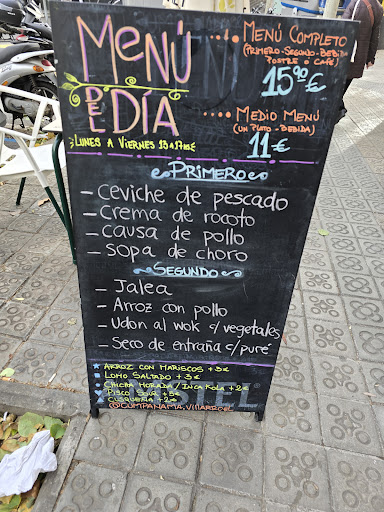 MENÚ
DEL DÍA
LUNES A VIERNES 13 A 17HS
MENÚ COMPLETO
(PRIMERO-SEGUNDO-BEBIDA
POSTRE Ó CAFÉ)
15,90€
MEDIO MENÚ
(UN PLATO - BEBIDA)
11€
PRIMERO
- CEVICHE DE PESCADO
- CREMA DE ROCOTO
- CAUSA DE POLLO
- SOPA DE CHORO
SEGUNDO
- JALEA
- ARROZ CON POLLO
- UDON AL WOK c/ VEGETALES
- SECO DE ENTRAÑA c/ PURÉ
ARROZ CON MARISCOS +3€
LOMO SALTADO +3€
CHICHA MORADA / INCA KOLA +2€
PISCO SOUR +5€
CUSQUEÑA +2€
@COMPANAMA.VILLARROEL